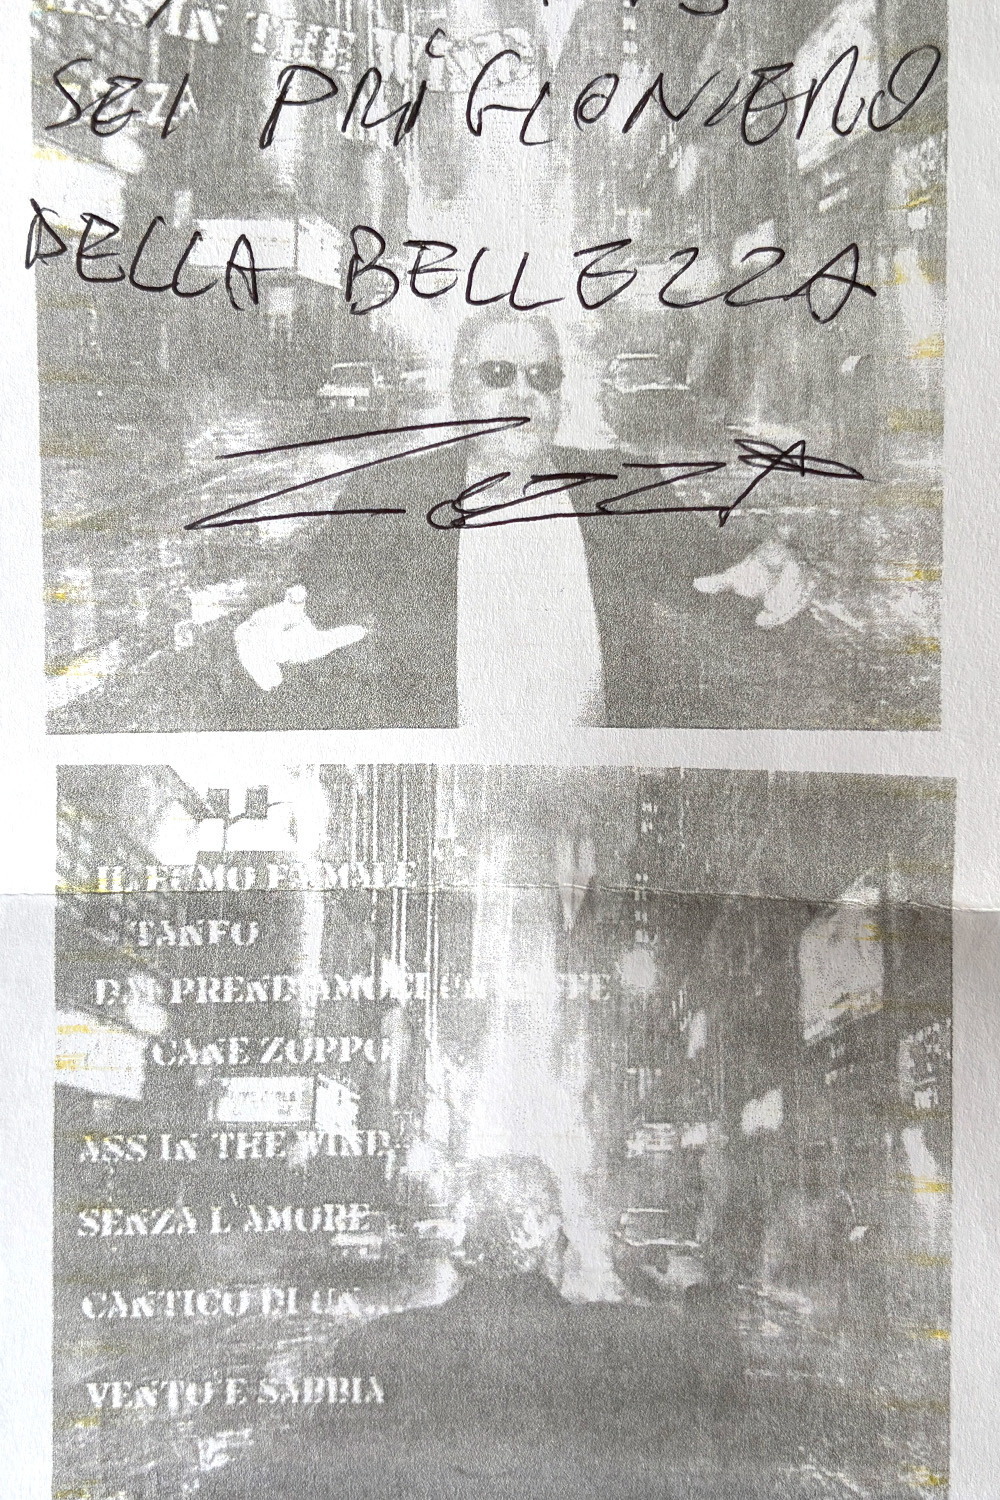 IN THE
SEI PRIGIONIERO
DELLA BELLEZZA
Zozza
IL FUMO FA MALE
TANFO
DAI PRENDIAMOCI
CANE ZOPPO
ASS IN THE WIND
SENZA L'AMORE
CANTICO DI UN...
VENTO E SABBIA